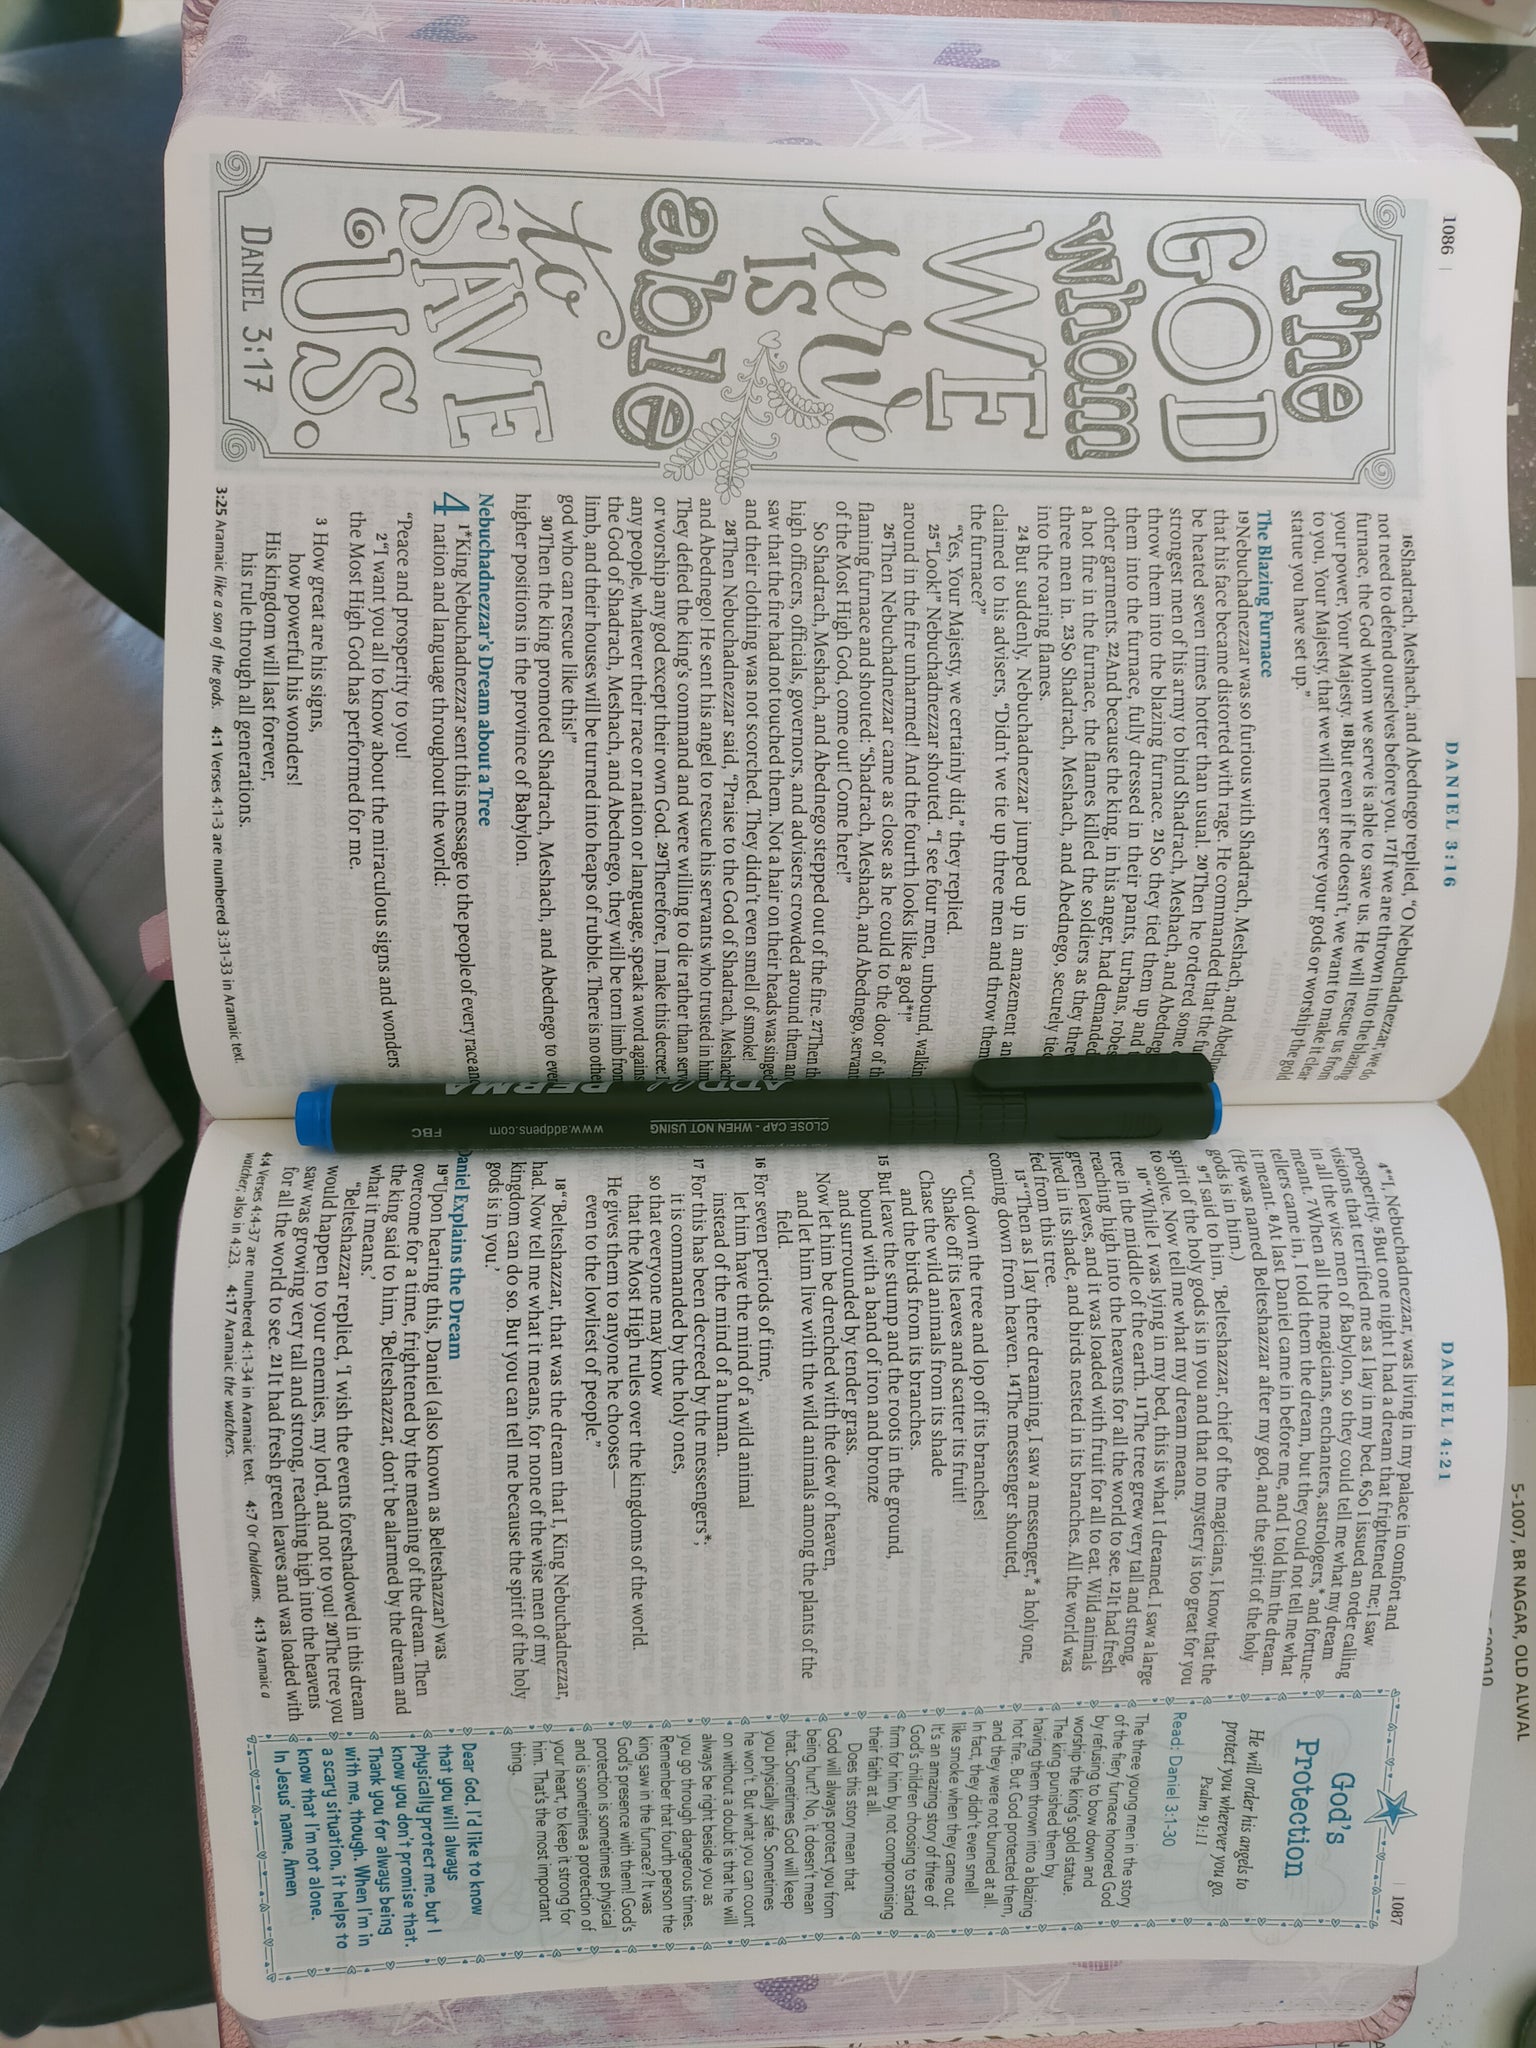 1086
DANIEL 3:16
The
GOD
whom
WE
serve
IS
able
to
SAVE
US.
DANIEL 3:17
16Shadrach, Meshach, and Abednego replied, “O Nebuchadnezzar, we do
not need to defend ourselves before you. 17If we are thrown into the blazing
furnace, the God whom we serve is able to save us. He will rescue us from
your power, Your Majesty. 18But even if he doesn’t, we want to make it clear
to you, Your Majesty, that we will never serve your gods or worship the gold
statue you have set up.”
The Blazing Furnace
19Nebuchadnezzar was so furious with Shadrach, Meshach, and Abedn
that his face became distorted with rage. He commanded that the fu
be heated seven times hotter than usual. 20Then he ordered some
strongest men of his army to bind Shadrach, Meshach, and Abedneg
throw them into the blazing furnace. 21So they tied them up and
them into the furnace, fully dressed in their pants, turbans, robes
other garments. 22And because the king, in his anger, had demanded
a hot fire in the furnace, the flames killed the soldiers as they thre
three men in. 23So Shadrach, Meshach, and Abednego, securely tied
into the roaring flames.
24But suddenly, Nebuchadnezzar jumped up in amazement an
claimed to his advisers, “Didn’t we tie up three men and throw them
the furnace?”
“Yes, Your Majesty, we certainly did,” they replied.
25“Look!” Nebuchadnezzar shouted. “I see four men, unbound, walkin
around in the fire unharmed! And the fourth looks like a god*!”
26Then Nebuchadnezzar came as close as he could to the door of th
flaming furnace and shouted: “Shadrach, Meshach, and Abednego, servant
of the Most High God, come out! Come here!”
So Shadrach, Meshach, and Abednego stepped out of the fire. 27Then th
high officers, officials, governors, and advisers crowded around them an
saw that the fire had not touched them. Not a hair on their heads was singed
and their clothing was not scorched. They didn’t even smell of smoke!
28Then Nebuchadnezzar said, “Praise to the God of Shadrach, Meshach
and Abednego! He sent his angel to rescue his servants who trusted in him
They defied the king’s command and were willing to die rather than serv
or worship any god except their own God. 29Therefore, I make this decree: I
any people, whatever their race or nation or language, speak a word against
the God of Shadrach, Meshach, and Abednego, they will be torn limb from
limb, and their houses will be turned into heaps of rubble. There is no othe
god who can rescue like this!”
30Then the king promoted Shadrach, Meshach, and Abednego to even
higher positions in the province of Babylon.
Nebuchadnezzar’s Dream about a Tree
4 1*King Nebuchadnezzar sent this message to the people of every race and
nation and language throughout the world:
“Peace and prosperity to you!
2“I want you all to know about the miraculous signs and wonders
the Most High God has performed for me.
3 How great are his signs,
how powerful his wonders!
His kingdom will last forever,
his rule through all generations.
3:25 Aramaic like a son of the gods. 4:1 Verses 4:1-3 are numbered 3:31-33 in Aramaic text.
PERMA
CLOSE CAP - WHEN NOT USING
www.addpens.com
FBC
DANIEL 4:21
1087
4*“I, Nebuchadnezzar, was living in my palace in comfort and
prosperity. 5But one night I had a dream that frightened me; I saw
visions that terrified me as I lay in my bed. 6So I issued an order calling
in all the wise men of Babylon, so they could tell me what my dream
meant. 7When all the magicians, enchanters, astrologers,* and fortune-
tellers came in, I told them the dream, but they could not tell me what
it meant. 8At last Daniel came in before me, and I told him the dream.
(He was named Belteshazzar after my god, and the spirit of the holy
gods is in him.)
9“I said to him, ‘Belteshazzar, chief of the magicians, I know that the
spirit of the holy gods is in you and that no mystery is too great for you
to solve. Now tell me what my dream means.
10“‘While I was lying in my bed, this is what I dreamed. I saw a large
tree in the middle of the earth. 11The tree grew very tall and strong,
reaching high into the heavens for all the world to see. 12It had fresh
green leaves, and it was loaded with fruit for all to eat. Wild animals
lived in its shade, and birds nested in its branches. All the world was
fed from this tree.
13“‘Then as I lay there dreaming, I saw a messenger,* a holy one,
coming down from heaven. 14The messenger shouted,
“Cut down the tree and lop off its branches!
Shake off its leaves and scatter its fruit!
Chase the wild animals from its shade
and the birds from its branches.
15 But leave the stump and the roots in the ground,
bound with a band of iron and bronze
and surrounded by tender grass.
Now let him be drenched with the dew of heaven,
and let him live with the wild animals among the plants of the
field.
16 For seven periods of time,
let him have the mind of a wild animal
instead of the mind of a human.
17 For this has been decreed by the messengers*;
it is commanded by the holy ones,
so that everyone may know
that the Most High rules over the kingdoms of the world.
He gives them to anyone he chooses—
even to the lowliest of people.”
18“‘Belteshazzar, that was the dream that I, King Nebuchadnezzar,
had. Now tell me what it means, for none of the wise men of my
kingdom can do so. But you can tell me because the spirit of the holy
gods is in you.’
Daniel Explains the Dream
19“Upon hearing this, Daniel (also known as Belteshazzar) was
overcome for a time, frightened by the meaning of the dream. Then
the king said to him, ‘Belteshazzar, don’t be alarmed by the dream and
what it means.’
“Belteshazzar replied, ‘I wish the events foreshadowed in this dream
would happen to your enemies, my lord, and not to you! 20The tree you
saw was growing very tall and strong, reaching high into the heavens
for all the world to see. 21It had fresh green leaves and was loaded with
4:4 Verses 4:4-37 are numbered 4:1-34 in Aramaic text. 4:7 Or Chaldeans. 4:13 Aramaic a
watcher; also in 4:23. 4:17 Aramaic the watchers.
God’s
Protection
He will order his angels to
protect you wherever you go.
Psalm 91:11
Read: Daniel 3:1-30
The three young men in the story
of the fiery furnace honored God
by refusing to bow down and
worship the king’s gold statue.
The king punished them by
having them thrown into a blazing
hot fire. But God protected them,
and they were not burned at all.
In fact, they didn’t even smell
like smoke when they came out.
It’s an amazing story of three of
God’s children choosing to stand
firm for him by not compromising
their faith at all.
Does this story mean that
God will always protect you from
being hurt? No, it doesn’t mean
that. Sometimes God will keep
you physically safe. Sometimes
he won’t. But what you can count
on without a doubt is that he will
always be right beside you as
you go through dangerous times.
Remember that fourth person the
king saw in the furnace? It was
God’s presence with them! God’s
protection is sometimes physical
and is sometimes a protection of
your heart, to keep it strong for
him. That’s the most important
thing.
Dear God, I’d like to know
that you will always
physically protect me, but I
know you don’t promise that.
Thank you for always being
with me, though. When I’m in
a scary situation, it helps to
know that I’m not alone.
In Jesus’ name, Amen
5-1007, BR NAGAR, OLD ALWAL